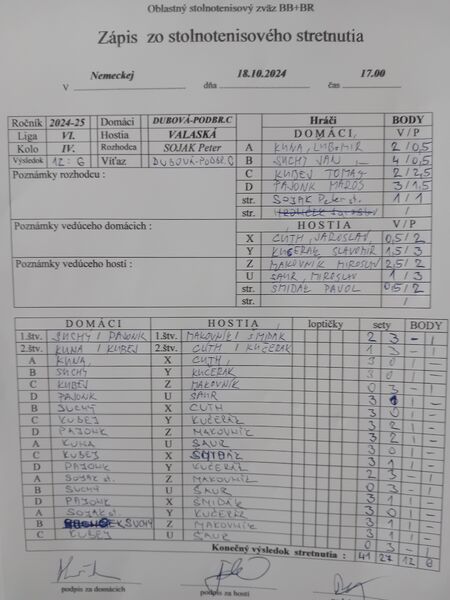 Oblastný stolnotenisový zväz BB+BR
Zápis zo stolnotenisového stretnutia
V Nemeckej dňa 18.10.2024 čas 17.00
Ročník 2024-25 Domáci DUBOVÁ-PODBR.C Hráči BODY
Liga VI. Hostia VALASKÁ DOMÁCI V/P
Kolo IV. Rozhodca SOJAK Peter A KUNA, ĽUBOMIR 2/0,5
Výsledok 12:6 Víťaz DUBOVÁ-PODBR.C B SUCHÝ JÁN 4/0,5
Poznámky rozhodcu : C KUBEJ TOMAŠ 2/2,5
D PAJONK MAROŠ 3/1,5
str. SOJAK Peter st. 1/1
str.
Poznámky vedúceho domácich : HOSTIA V/P
X CUTH, JAROSLAV 0,5/2
Y KUČERÁK SLAVOMIR 1,5/3
Poznámky vedúceho hostí : Z MAKOVNÍK MIROSLAV 2,5/2
U ŠAUR, MIROSLAV 1/3
str. ŠMIDAK PAVOL 0,5/2
str. /
DOMÁCI HOSTIA loptičky sety BODY
1.štv. SUCHÝ / PAJONK 1.štv. MAKOVNÍK / ŠMIDAK 2 3 - 1
2.štv. KUNA / KUBEJ 2.štv. CUTH / KUČERAK 1 3 - 1
A KUNA X CUTH 3 0 1 -
B SUCHÝ Y KUČERAK 3 0 1 -
C KUBEJ Z MAKOVNÍK 0 3 - 1
D PAJONK U ŠAUR 3
B SUCHÝ X CUTH 3 0 1 -
C KUBEJ Y KUČERÁK 3 2 1 -
D PAJONK Z MAKOVNÍK 3 2 1 -
A KUNA U ŠAUR 3 2 1 -
C KUBEJ X 3 0 1 -
D PAJONK Y KUČERÁK 3 1 1 -
A SOJAK st. Z MAKOVNÍK 2 3 - 1
B SUCHÝ U ŠAUR
D PAJONK X ŠMIDAK 3 1
A SOJAK st. Y KUČERAK 3 0 1 -
B SUCHÝ Z MAKOVNÍK 3 1 1 -
C KUBEJ U ŠAUR
Konečný výsledok stretnutia : 41 27 12 6
podpis za domácich podpis za hostí